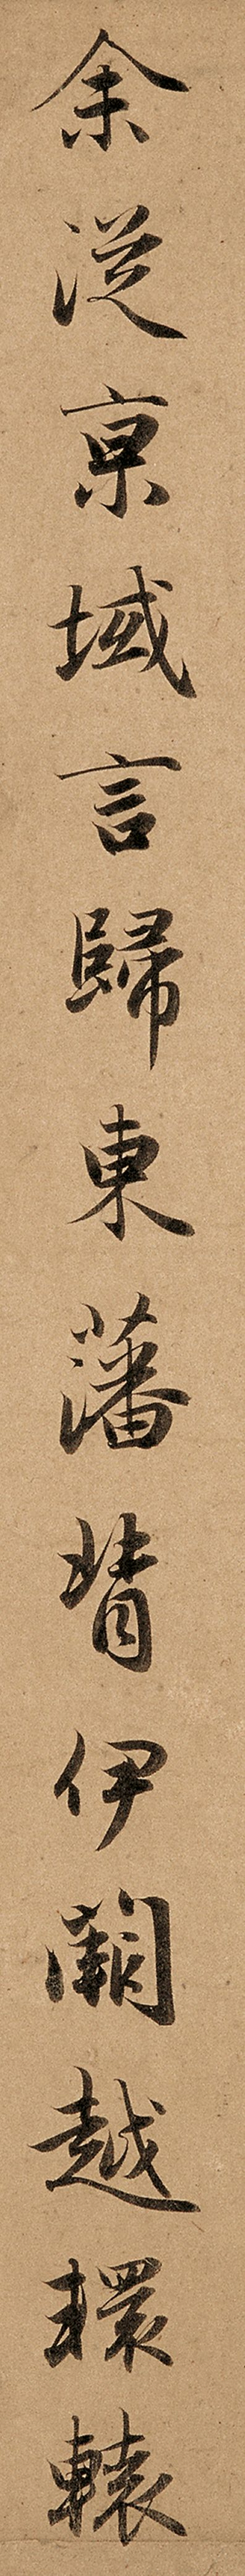 余從京域言歸東藩背伊闕越轘轅